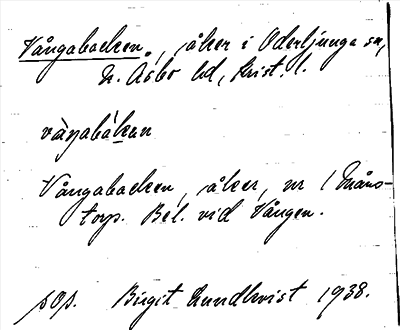 Vångabacken, åker i Oderljunga sn,
N. Åsbo hd, Krist. l.
våŋabåkan
Vångabacken, åker, nr 1 Måns-
torp. Bel. vid Vången.
pop. Birgit Lundkvist 1938.